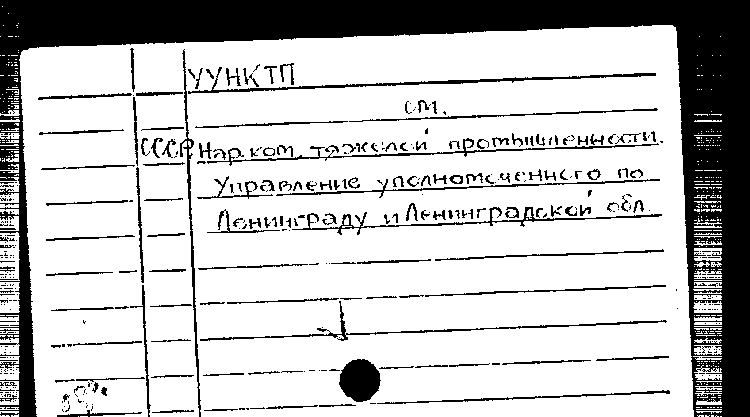 УУНКТП
см.
СССР. Нарком. тяжелой промышленности.
Управление уполномоченного по
Ленинграду и Ленинградской обл.